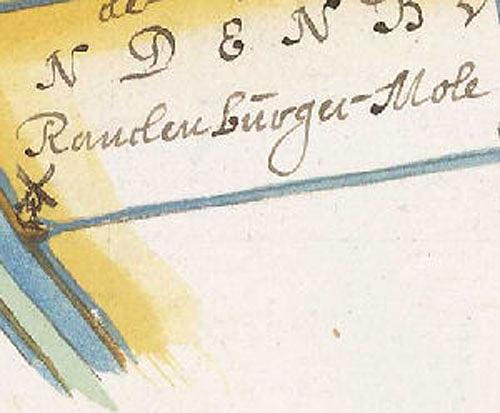 de
N D E N B
Randenburger-Mole